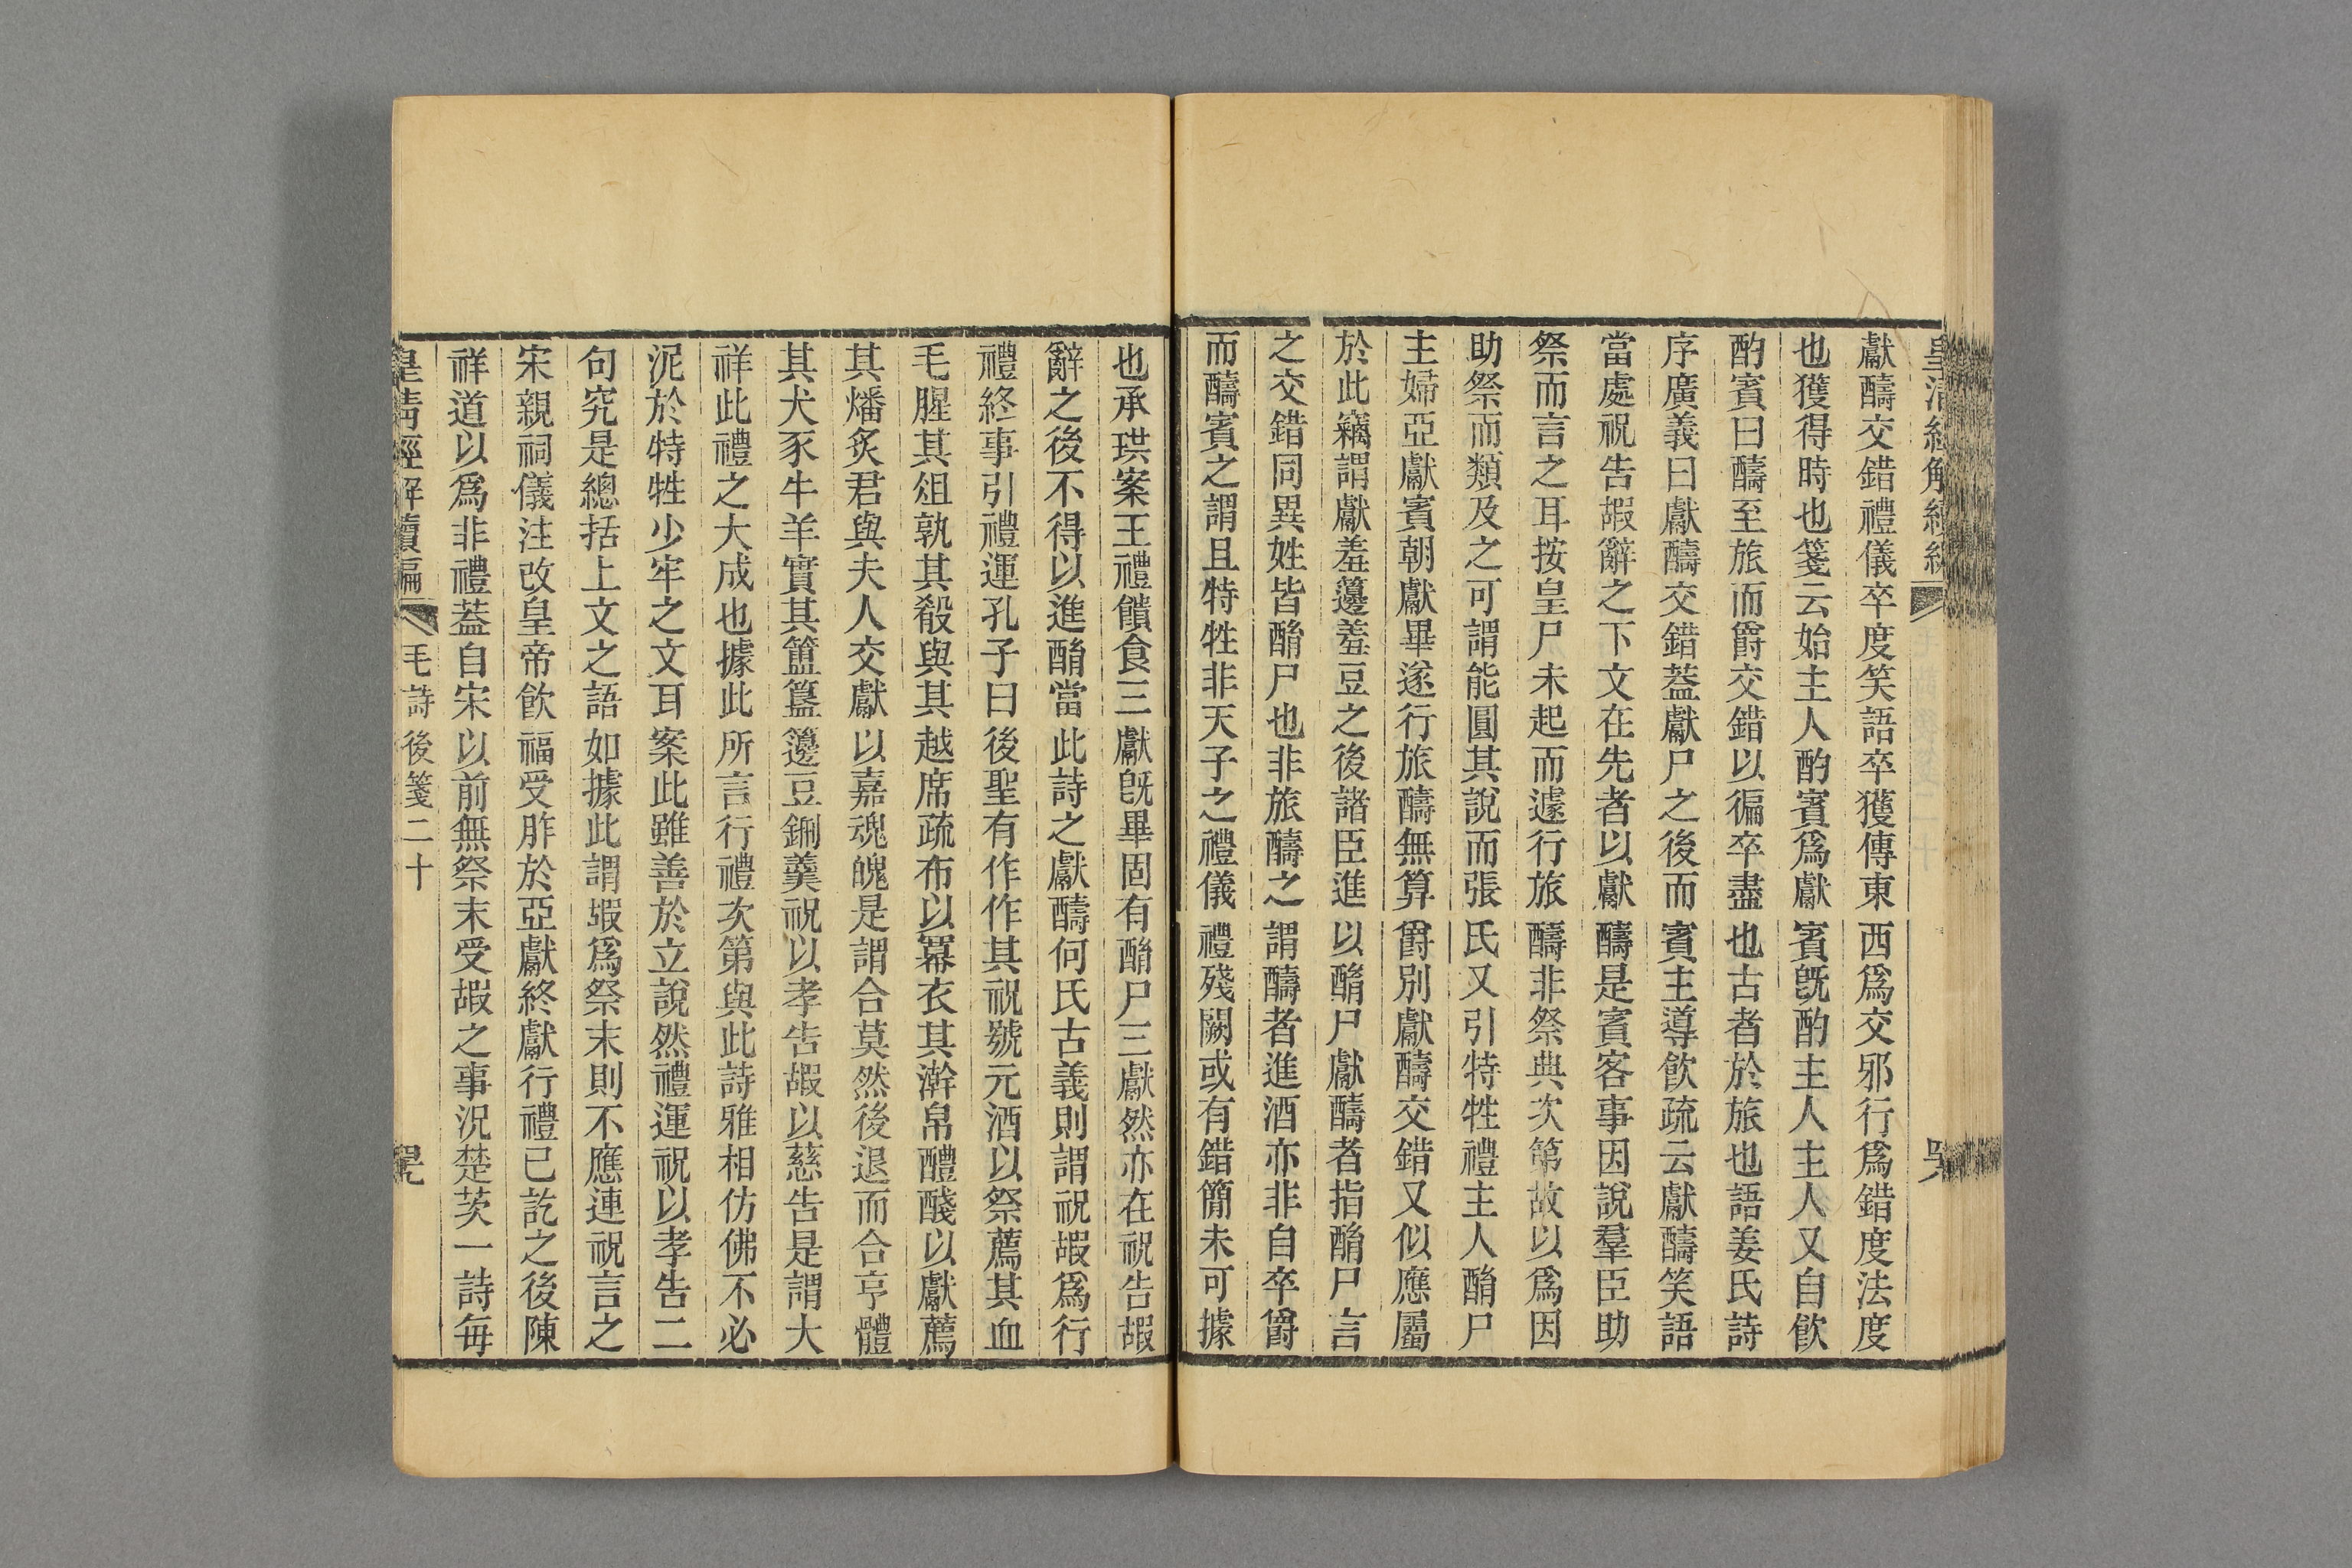 皇清經解續編
獻醻交錯禮儀卒度笑語卒獲傳東西爲交邪行爲錯度法度
也獲得時也箋云始主人酌賓爲獻賓旣酌主人主人又自飮
酌賓曰醻至旅而爵交錯以徧卒盡也古者於旅也語姜氏詩
序廣義曰獻醻交錯葢獻尸之後而賓主導飮疏云獻醻笑語
當處祝告嘏辭之下文在先者以獻醻是賓客事因說羣臣助
祭而言之耳按皇尸未起而遽行旅醻非祭典次第故以爲因
助祭而類及之可謂能圓其說而張氏又引特牲禮主人酳尸
主婦亞獻賓朝獻畢遂行旅醻無算爵別獻醻交錯又似應屬
於此竊謂獻羞籩羞豆之後諸臣進以酳尸獻醻者指酳尸言
之交錯同異姓皆酳尸也非旅醻之謂醻者進酒亦非自卒爵
而醻賓之謂且特牲非天子之禮儀禮殘闕或有錯簡未可據
也承珙案王禮饋食三獻旣畢固有酳尸三獻然亦在祝告嘏
辭之後不得以進酳當此詩之獻醻何氏古義則謂祝嘏爲行
禮終事引禮運孔子曰後聖有作作其祝號元酒以祭薦其血
毛腥其俎孰其殽與其越席疏布以冪衣其澣帛醴醆以獻薦
其燔炙君與夫人交獻以嘉魂魄是謂合莫然後退而合亨體
其犬豕牛羊實其簠簋籩豆鉶羹祝以孝告嘏以慈告是謂大
祥此禮之大成也據此所言行禮次第與此詩雅相仿佛不必
泥於特牲少牢之文耳案此雖善於立說然禮運祝以孝告二
句究是總括上文之語如據此謂嘏爲祭末則不應連祝言之
宋親祠儀注改皇帝飮福受胙於亞獻終獻行禮已訖之後陳
祥道以爲非禮葢自宋以前無祭末受嘏之事況楚茨一詩每
皇清經解續編 毛詩後箋二十